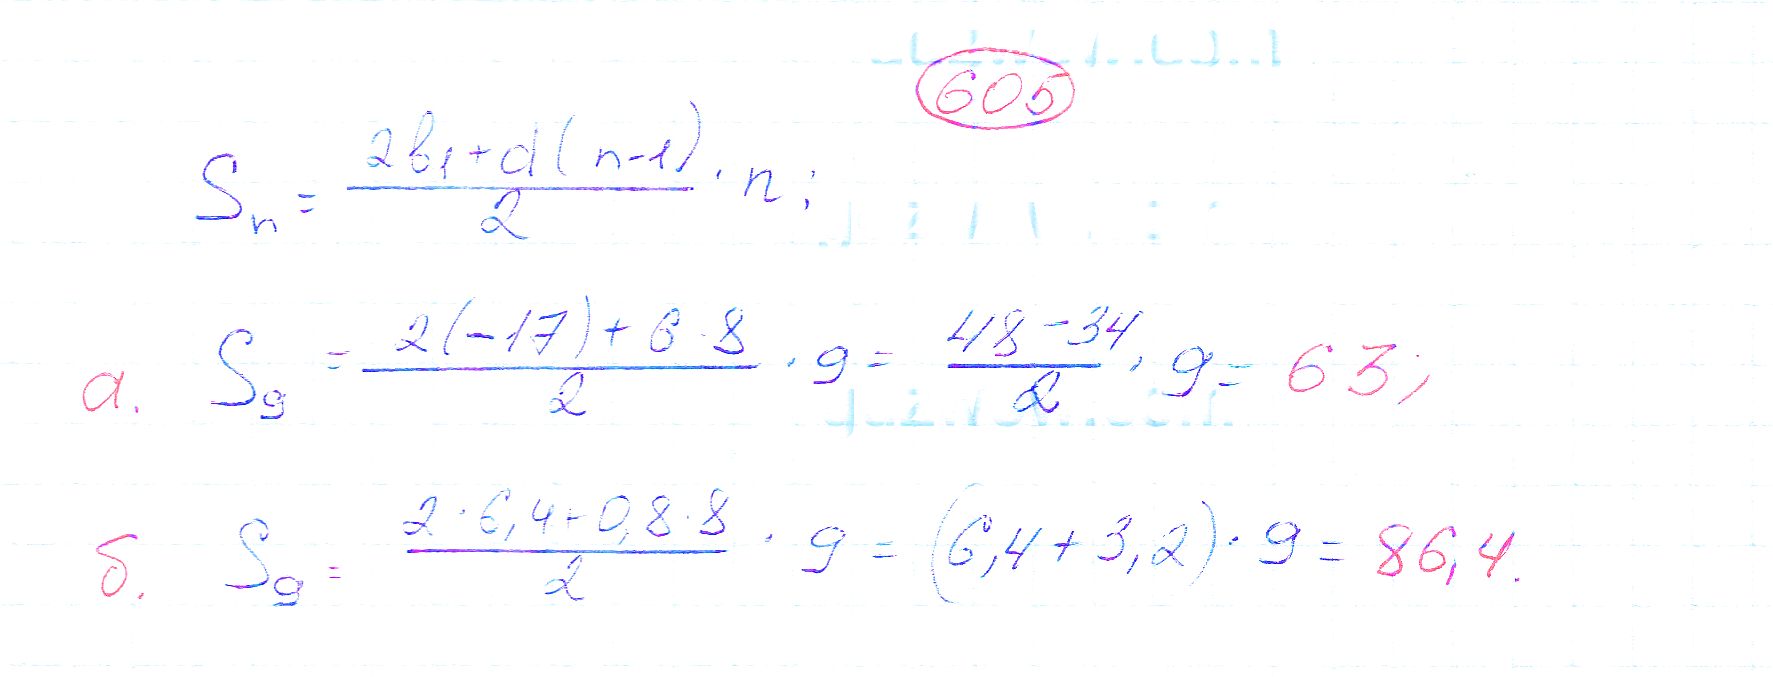 605
Sₙ = (2b₁ + d(n-1))/2 · n;
а. S₉ = (2(-17) + 6·8)/2 · 9 = (48 - 34)/2 · 9 = 63;
б. S₉ = (2·6,4 + 0,8·8)/2 · 9 = (6,4 + 3,2) · 9 = 86,4.